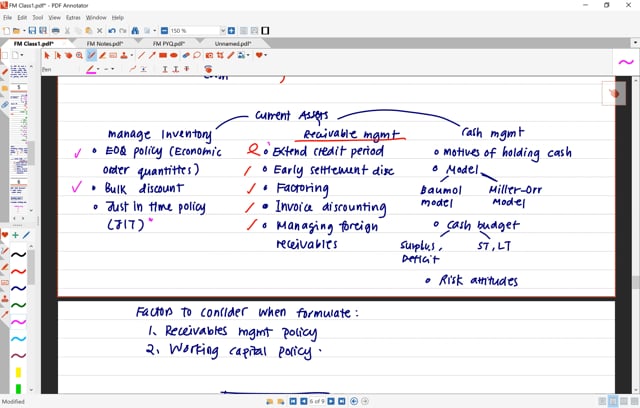 FM Class1.pdf* - PDF Annotator
File Edit View Extras Window Help
150 %
FM Class1.pdf* FM Notes.pdf* FM PYQ.pdf* Unnamed.pdf*
Pen
Current Assets
manage Inventory
• EOQ policy (Economic
order quantities)
• Bulk discount
• Just in time policy
(JIT)
Receivable mgmt
• Extend credit period
• Early settlement disc
• Factoring
• Invoice discounting
• Managing foreign
receivables
Cash mgmt
• Motives of holding cash
• Model
Baumol
model
Miller-Orr
Model
• Cash budget
Surplus,
Deficit
ST, LT
• Risk attitudes
Factors to consider when formulate:
1. Receivables mgmt policy
2. Working capital policy.
Modified
6 of 9